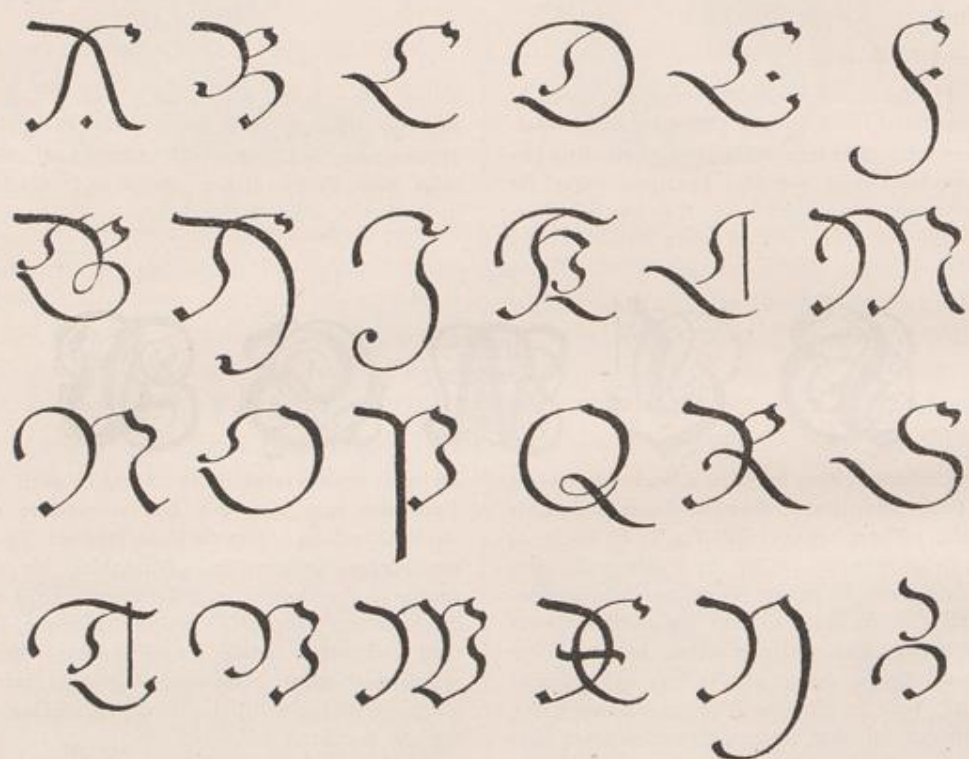 A B C D E F
G H J K L M
N O P Q R S
T V W X Y Z